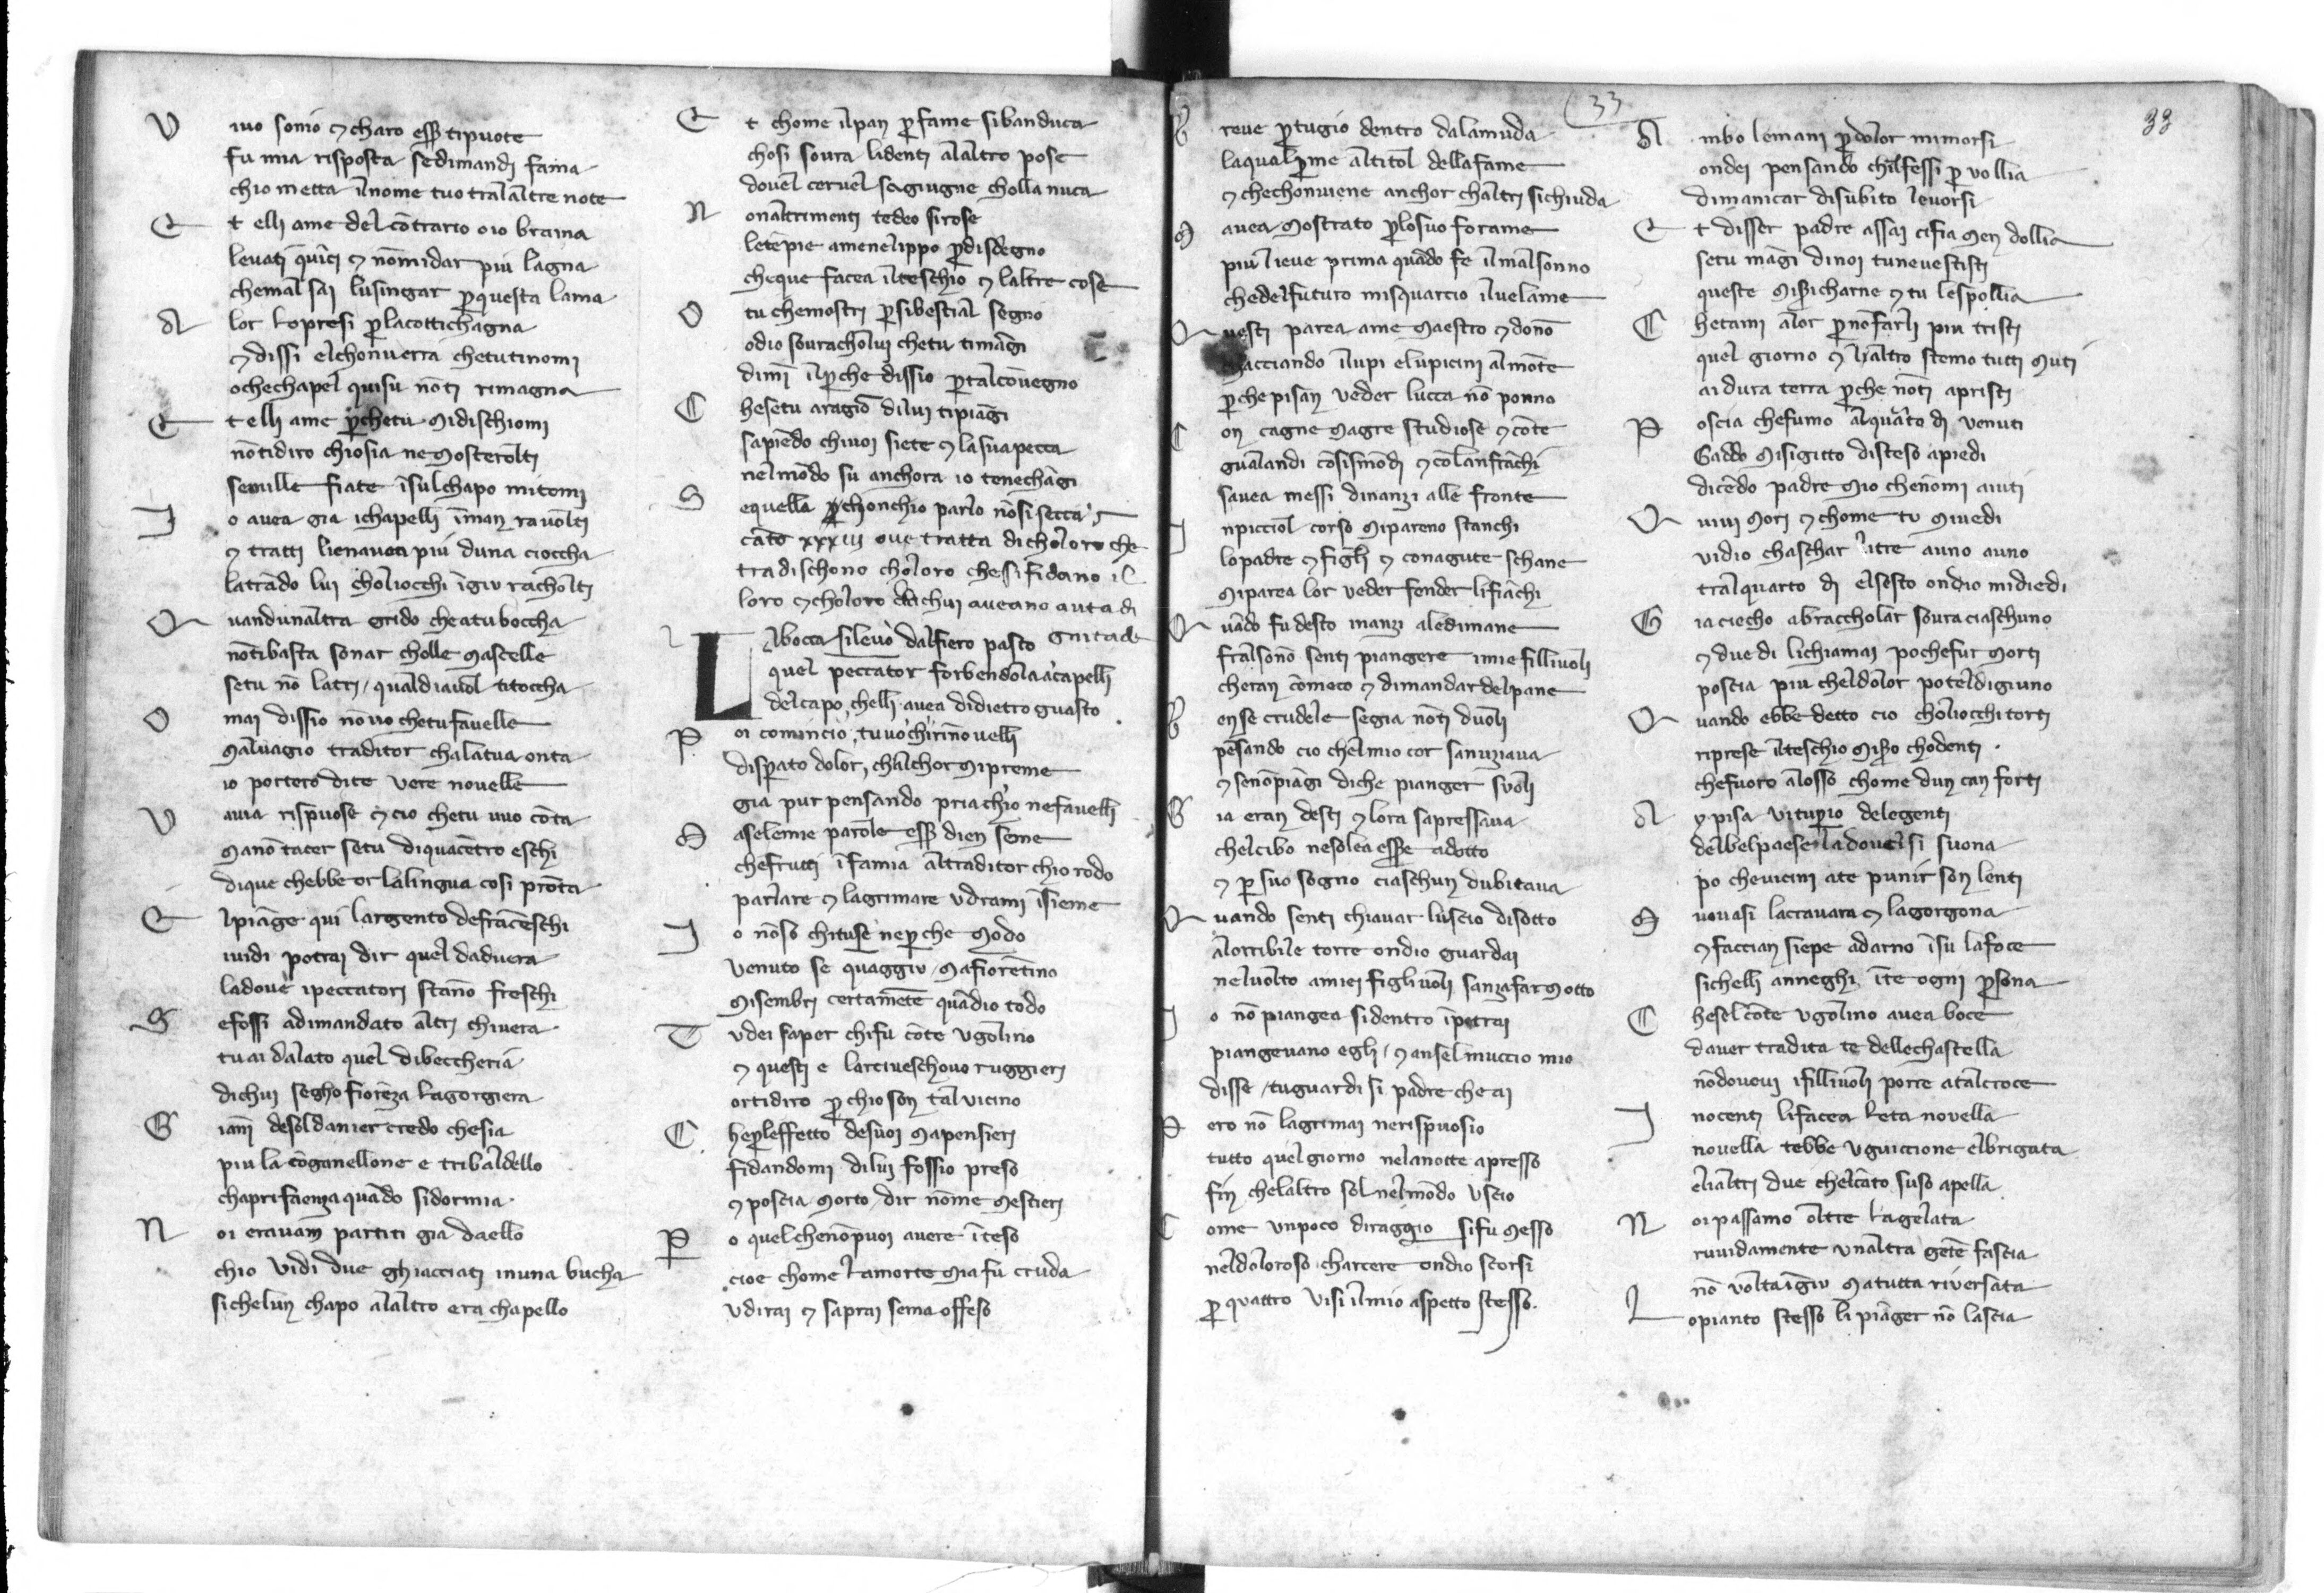 V ivo sonio ⁊ charo esser tipuote
fu mia risposta sedimandi fama
chio metta ilnome tuo tralaltre note
E t elli ame del cōtrario oio brama
levati quīci ⁊ nōmidar piu lagna
chemal sai lusingar perquesta lama
A lor lopresi perlacottichagna
⁊ dissi elchonverra chetutinomi
ochechapel quisu nōti rimagna
E t elli ame perchetu midischiomi
nōtidiro chiosia nemosterolti
semille fiate īsulchapo mitomi
I o avea gia ichapelli īman ravolti
⁊ tratti lienavea piu duna cioccha
latrādo lui choliocchi īgiu racholti
Q uandunaltra grido cheatu boccha
nōtibasta sonar cholle mascelle
setu nō latri, qualdiavol titoccha
O mai dissio nōvo chetufavelle
malvagio traditor chalatua onta
io portero dite vere novelle
V avia rispuose ⁊ cio chetu vuo cōta
manō tacer setu diquacētro eschi
dique chebbe or lalingua cosi prōta
E lpiāge qui largento defrāceschi
ividi potrai dir quel daduera
ladove ipeccatori stāno freschi
S efossi adimandato altri chivera
tuai dalato quel dibeccheria
dichui segho fiorēza lagorgiera
G iāni desoldanier credo chesia
piu la cōganellone e tribaldello
chaprifaenza quādo sidormia
N oi eravam partiti gia daello
chio vidi due ghiacciati inuna bucha
sichelun chapo alaltro era chapello
E t chome ilpan perfame sibanduca
chosi sovra lidenti alaltro pose
dovel cervel sagiugne cholla nuca
N onaltrimenti tedeo sirose
letēpie amenelippo perdisdegno
cheque facea ilteschio ⁊ laltre cose
O tu chemostri persibestial segno
odio sovracholui chetu timāgi
dimi ilperche dissio pertalcōvegno
C hesetu aragiō dilui tipiāgi
sapiēdo chivoi siete ⁊ lasuapecca
nelmōdo su anchora io tenechāgi
S equella chonchio parlo nōsisecca
cāto xxxiij ove tratta dicholoro che
tradischono choloro chessifidano ī
loro ⁊ choloro dachui aveano auta di
gnitade
L Abocca silevo dalfiero pasto
quel peccator forbendola acapelli
delcapo, chelli avea didietro guasto
P oi comincio, tuvochirinovelli
disperato dolor, chalchor mipreme
gia pur pensando priachio nefavelli
M aselemie parole esser dien seme
chefrutti īfamia altraditor chio rodo
parlare ⁊ lagrimare vdrami īsieme
I o nōso chituse neperche modo
venuto se quaggiu, mafiorētino
misembri certamēte quādio todo
T vdei saper chifu cōte vgolino
⁊ questi e larcivescovo ruggieri
ortidiro perchioson tal vicino
C heperleffetto desuoi mapensieri
fidandomi dilui fossio preso
⁊ poscia morto, dir nōme mestieri
P o quelchenōpuoi avere īteso
cioe chome lamorte mia fu cruda
vdirai ⁊ saprai sema offeso
B reve pertugio dentro dalamuda
laqual perme altitol dellafame
⁊ chechonviene anchor chaltri sichiuda
M avea mostrato perlosuo forame
piu lieve prima quādo fe ilmalsonno
chedelfuturo misquarcio ilvelame
Q uesti parea ame maestro ⁊ donō
chacciando ilupi elupicini almōte
perchepisan veder lucca nō ponno
C on cagne magre studiose ⁊ cōte
gualandi cōsismōdi ⁊ cōlanfrāchi
savea messi dinanzi alle fronte
I npicciol corso mipareno stanchi
lopadre ⁊ figli ⁊ conagute schane
miparea lor veder fender lifiāchi
Q uādo fu desto inanzi aledimane
fralsonō senti piangere imie fillivoli
cheran cōmeco ⁊ dimandar delpane
B en se crudele segia nōti dvoli
pēsando cio chelmio cor sanunziava
⁊ senōpiāgi diche pianger svoli
G ia eran desti ⁊ lora sapressava
chelcibo nesolea essere adotto
⁊ per suo sogno ciaschun dubitava
Q uando senti chiavar luscio disotto
alorribile torre ondio guardai
nelvolto amiei figlivoli sanzafarmotto
I o nō piangea sidentro īpetrai
piangevano egli, ⁊ anselmuccio mio
disse, tuguardi si padre che ai
P ero nō lagrimai nerispuosio
tutto quelgiorno nelanotte apresso
fin chelaltro sol nelmōdo vscio
C ome vnpoco diraggio sifu messo
neldoloroso charcere ondio scorsi
per quattro visi ilmio aspetto stesso.
33
33
A mbo lemani perdolor mimorsi
ondei pensando chilfessi per vollia
dimanicar disubito levorsi
E t disser padre assai cifia men dollia
setu māgi dinoi tunevestisti
queste miserecharne ⁊ tu lespollia
C hetami alor pernōfarli piu tristi
quel giorno ⁊ laltro stemo tutti muti
ai dura terra perche nōti apristi
P oscia chefumo alquāto di venuti
Gaddo misigitto disteso apiedi
dicēdo padre mio chenōmi aiuti
Q uivi mori ⁊ chome tu mivedi
vidio chaschar litre auno auno
tralquarto di elsesto ondio midiedi
G iaciecho abraccholar sovra ciaschuno
⁊ due di lichiamai pochefur morti
poscia piu cheldolor poteldigiuno
Q uando ebbe detto cio choliocchi torti
riprese ilteschio misero chodenti
chefuoro alosso chome dun can forti
A y pisa vituperio delegenti
delbelpaese ladovelsi suona
po chevicini ate punir son lenti
M uovasi lacravara ⁊ lagorgona
⁊ faccian siepe adarno īsu lafoce
sichelli anneghi īte ogni persona
C hesel cōte vgolino avea boce
daver tradita te dellechastella
nōdovevi ifillivoli porre atalcroce
I nocenti lifacea leta novella
novella tebbe vguiccione elbrigata
elialtri due chelcāto suso apella
N oi passamo oltre lagelata
ruvidamente vnaltra gēte fascia
nō voltaīgiu matutta riversata
L opianto stesso li piāger nō lascia